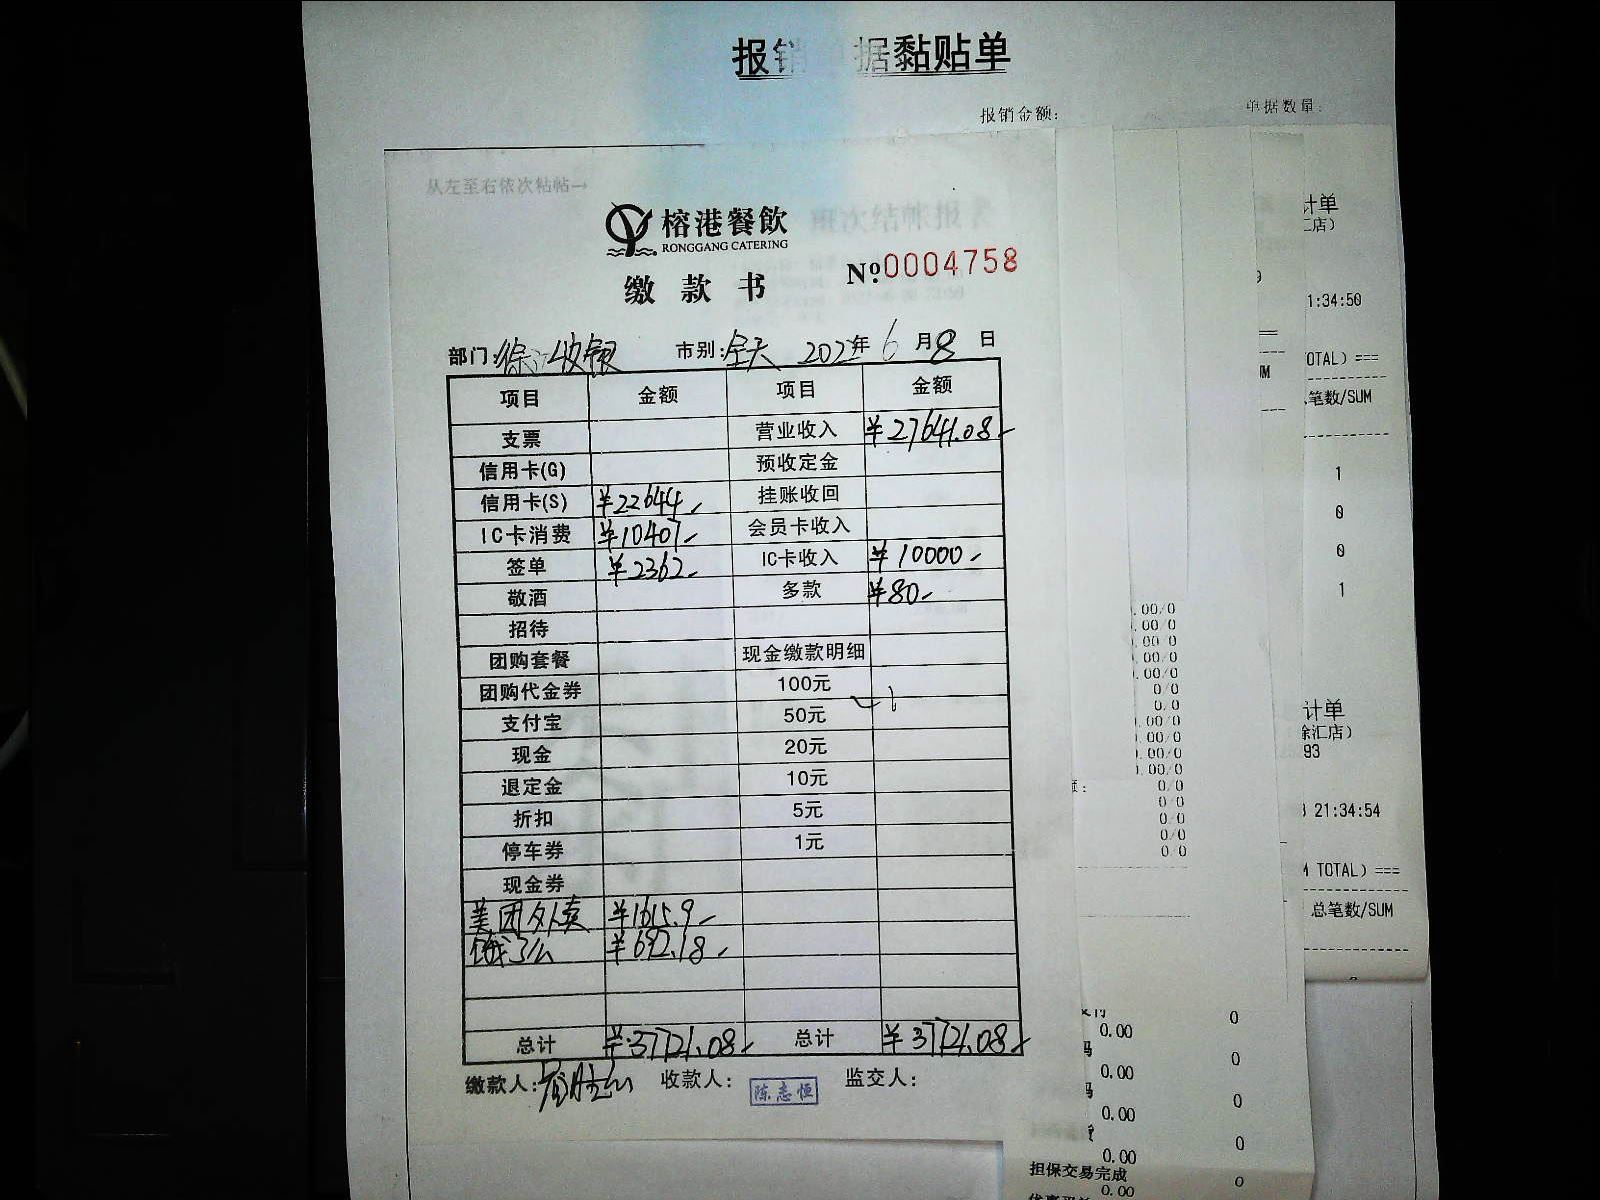 报销 据黏贴单
报销金额: 单据数量:
从左至右依次粘帖→
榕港餐飲
RONGGANG CATERING
班次结帐报
缴款书 Nº0004758
部门:徐汇收银 市别:全天 2022年6月8日
项目 金额 项目 金额
支票 营业收入 ¥27641.08
信用卡(G) 预收定金
信用卡(S) ¥22644 挂账收回
IC卡消费 ¥10407 会员卡收入
签单 ¥2362 IC卡收入 ¥10000
敬酒 多款 ¥80
招待
团购套餐 现金缴款明细
团购代金券 100元
支付宝 50元
现金 20元
退定金 10元
折扣 5元
停车券 1元
现金券
美团外卖 ¥1615.9
饿了么 ¥692.18
总计 ¥37721.08 总计 ¥37721.08
缴款人: 收款人: 陈志恒 监交人:
.00/0
.00/0
.00/0
.00/0
.00/0
0/0
0/0
.00/0
.00/0
.00/0
.00/0
0/0
0/0
0/0
0/0
0/0
计单
汇店)
1:34:50
OTAL) ===
总笔数/SUM
1
0
0
1
计单
徐汇店)
93
21:34:54
TOTAL) ===
总笔数/SUM
0.00 0
码 0
0.00
码 0
0.00
0
0.00
担保交易完成 0
0.00